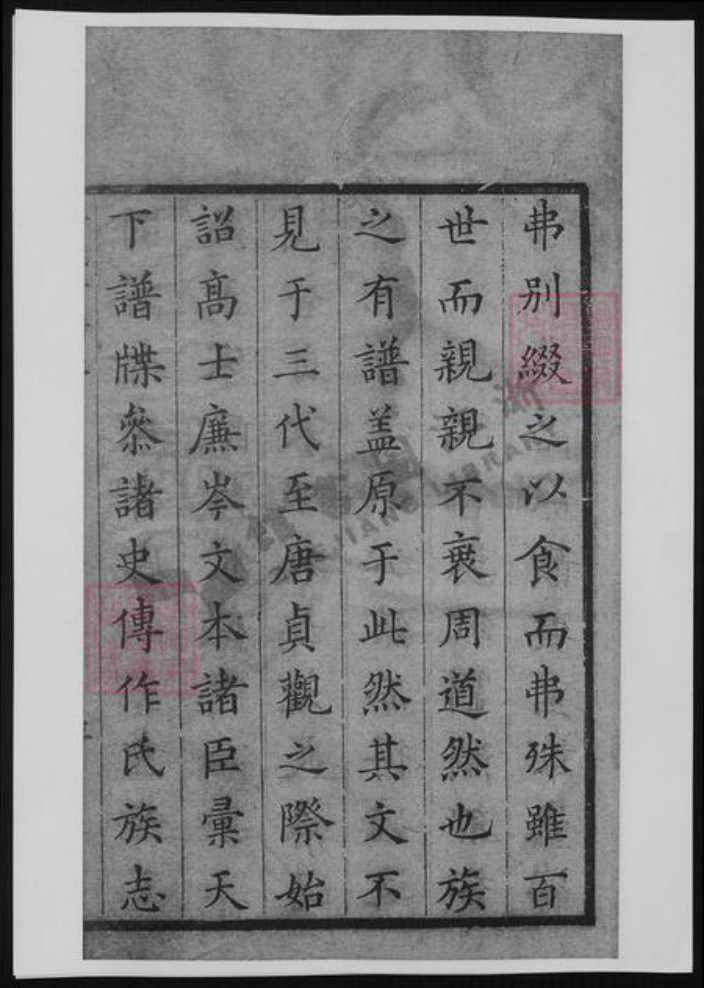 弗別綴之以食而弗殊雖百
世而親親不衰周道然也族
之有譜盖原于此然其文不
見于三代至唐貞觀之際始
詔髙士廉岑文本諸臣彚天
下譜牒叅諸史傳作氏族志